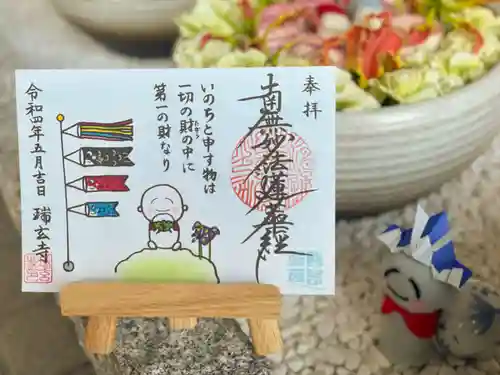 奉拝
南無妙法蓮華経
いのちと申す物は
一切の財の中に
たから
第一の財なり
令和四年五月吉日
瑞玄寺